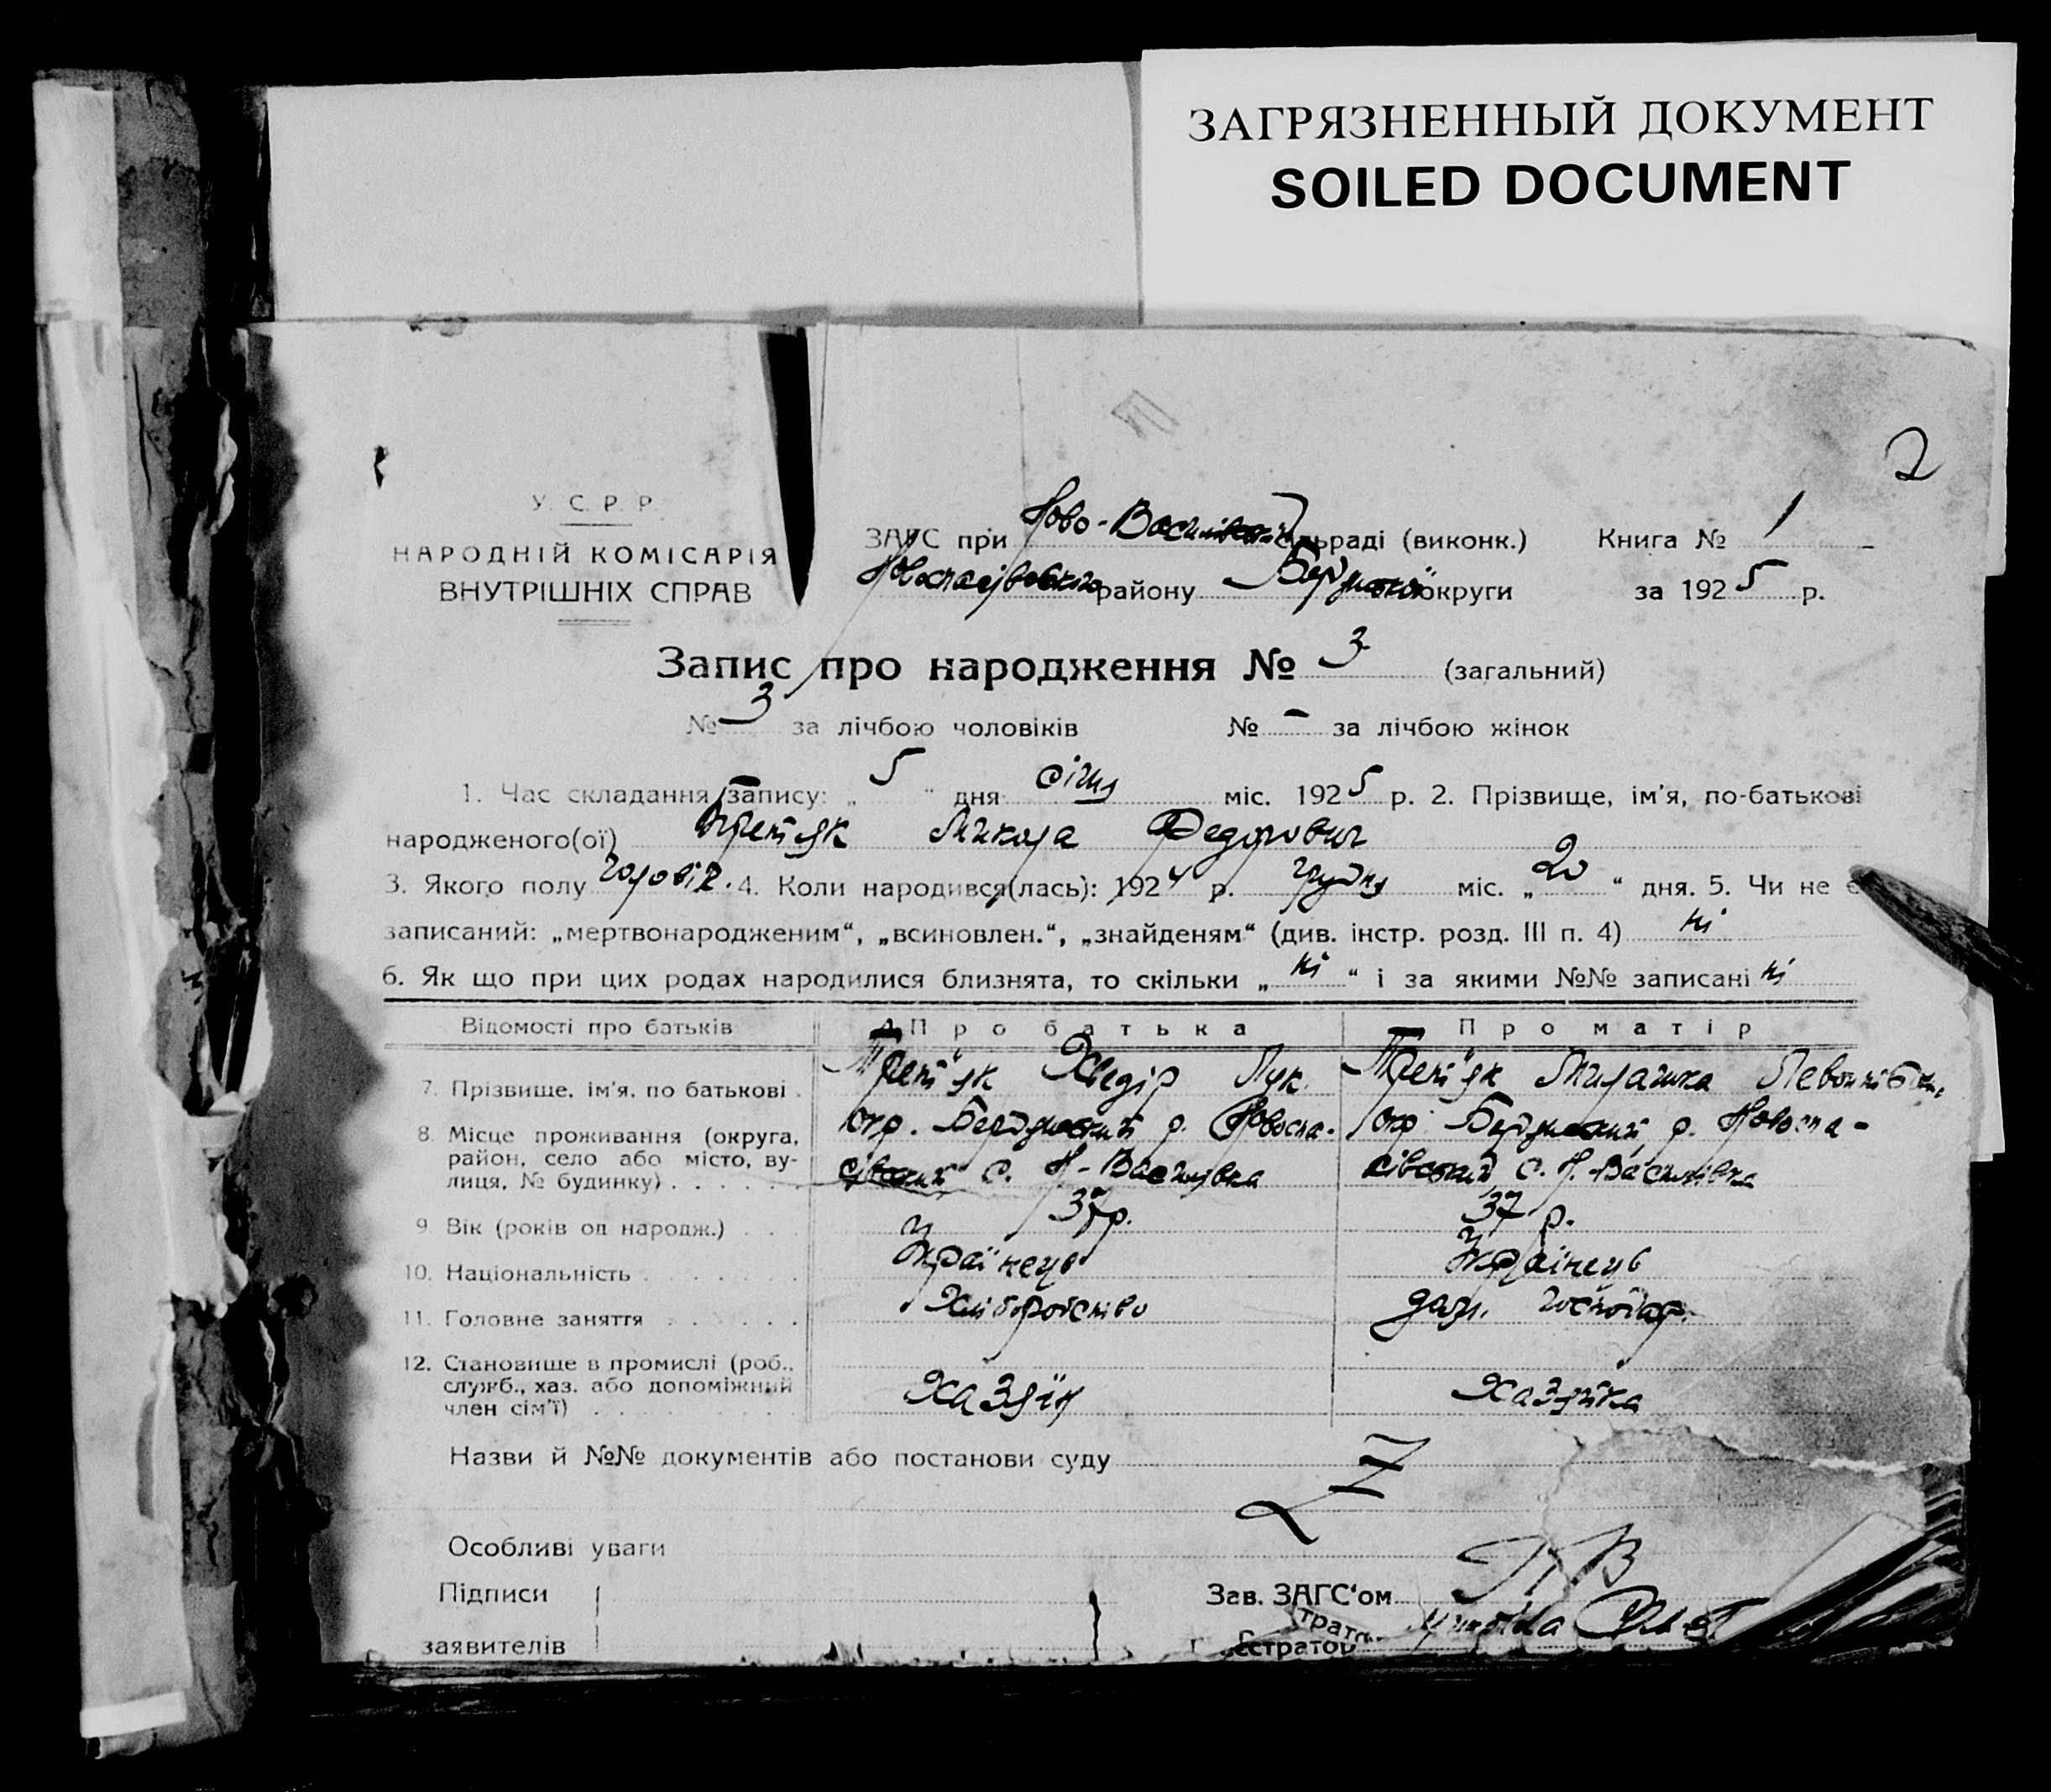 ЗАГРЯЗНЕННЫЙ ДОКУМЕНТ
SOILED DOCUMENT
2
У. С. Р. Р.
НАРОДНІЙ КОМІСАРІЯ
ВНУТРІШНІХ СПРАВ
ЗАГС при Ново-Василівській сільраді (виконк.) Книга № 1
Новоспасівського району Бердянської округи за 1925 р.
Запис про народження № 3 (загальний)
№ 3 за лічбою чоловіків № - за лічбою жінок
1. Час складання запису: „ 5 “ дня січня міс. 1925 р. 2. Прізвище, ім'я, по-батькові
народженого(ої) Третяк Микола Федорович
3. Якого полу чоловік. 4. Коли народився(лась): 1924 р. грудня міс. „ 20 “ дня. 5. Чи не є
записаний: „мертвонародженим“, „всиновлен.“, „знайденям“ (див. інстр. розд. III п. 4) ні
6. Як що при цих родах народилися близнята, то скільки „ ні “ і за якими №№ записані ні
Відомості про батьків Про батька Про матір
7. Прізвище, ім'я, по батькові . Трет'як Хведір Лук. Трет'як Милашка
8. Місце проживання (округа, окр. Бердянський р. Новоспа- окр. Бердянський р. Новоспа-
район, село або місто, ву-
лиця, № будинку) . . . . . . сівський с. Н-Василівка сівський с. Н. Василівка
9. Вік (років од народж.) . . . 37 р. 37 р.
10. Національність . . . . . . . Українець Українець
11. Головне заняття . . . . . . Хліборобство дом. господар.
12. Становище в промислі (роб.,
служб., хаз. або допоміжний
член сім'ї) . . . . . . . . . . Хазяїн Хазяйка
Назви й №№ документів або постанови суду
Особливі уваги
Підписи
заявителів
Зав. ЗАГС'ом
єстратор